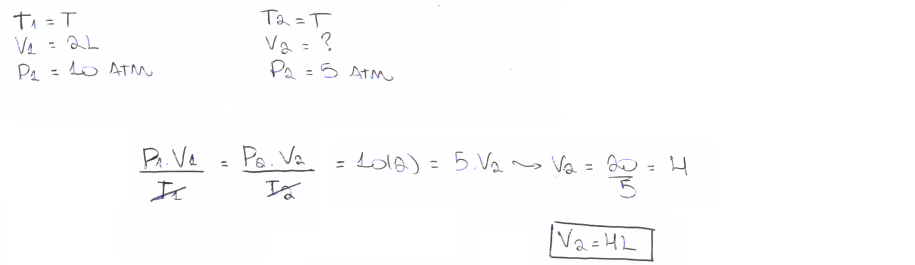 T1 = T
V1 = 2L
P1 = 10 ATM
T2 = T
V2 = ?
P2 = 5 ATM
P1.V1/T1 = P2.V2/T2 = 10(2) = 5.V2 ⤳ V2 = 20/5 = 4
V2 = 4L